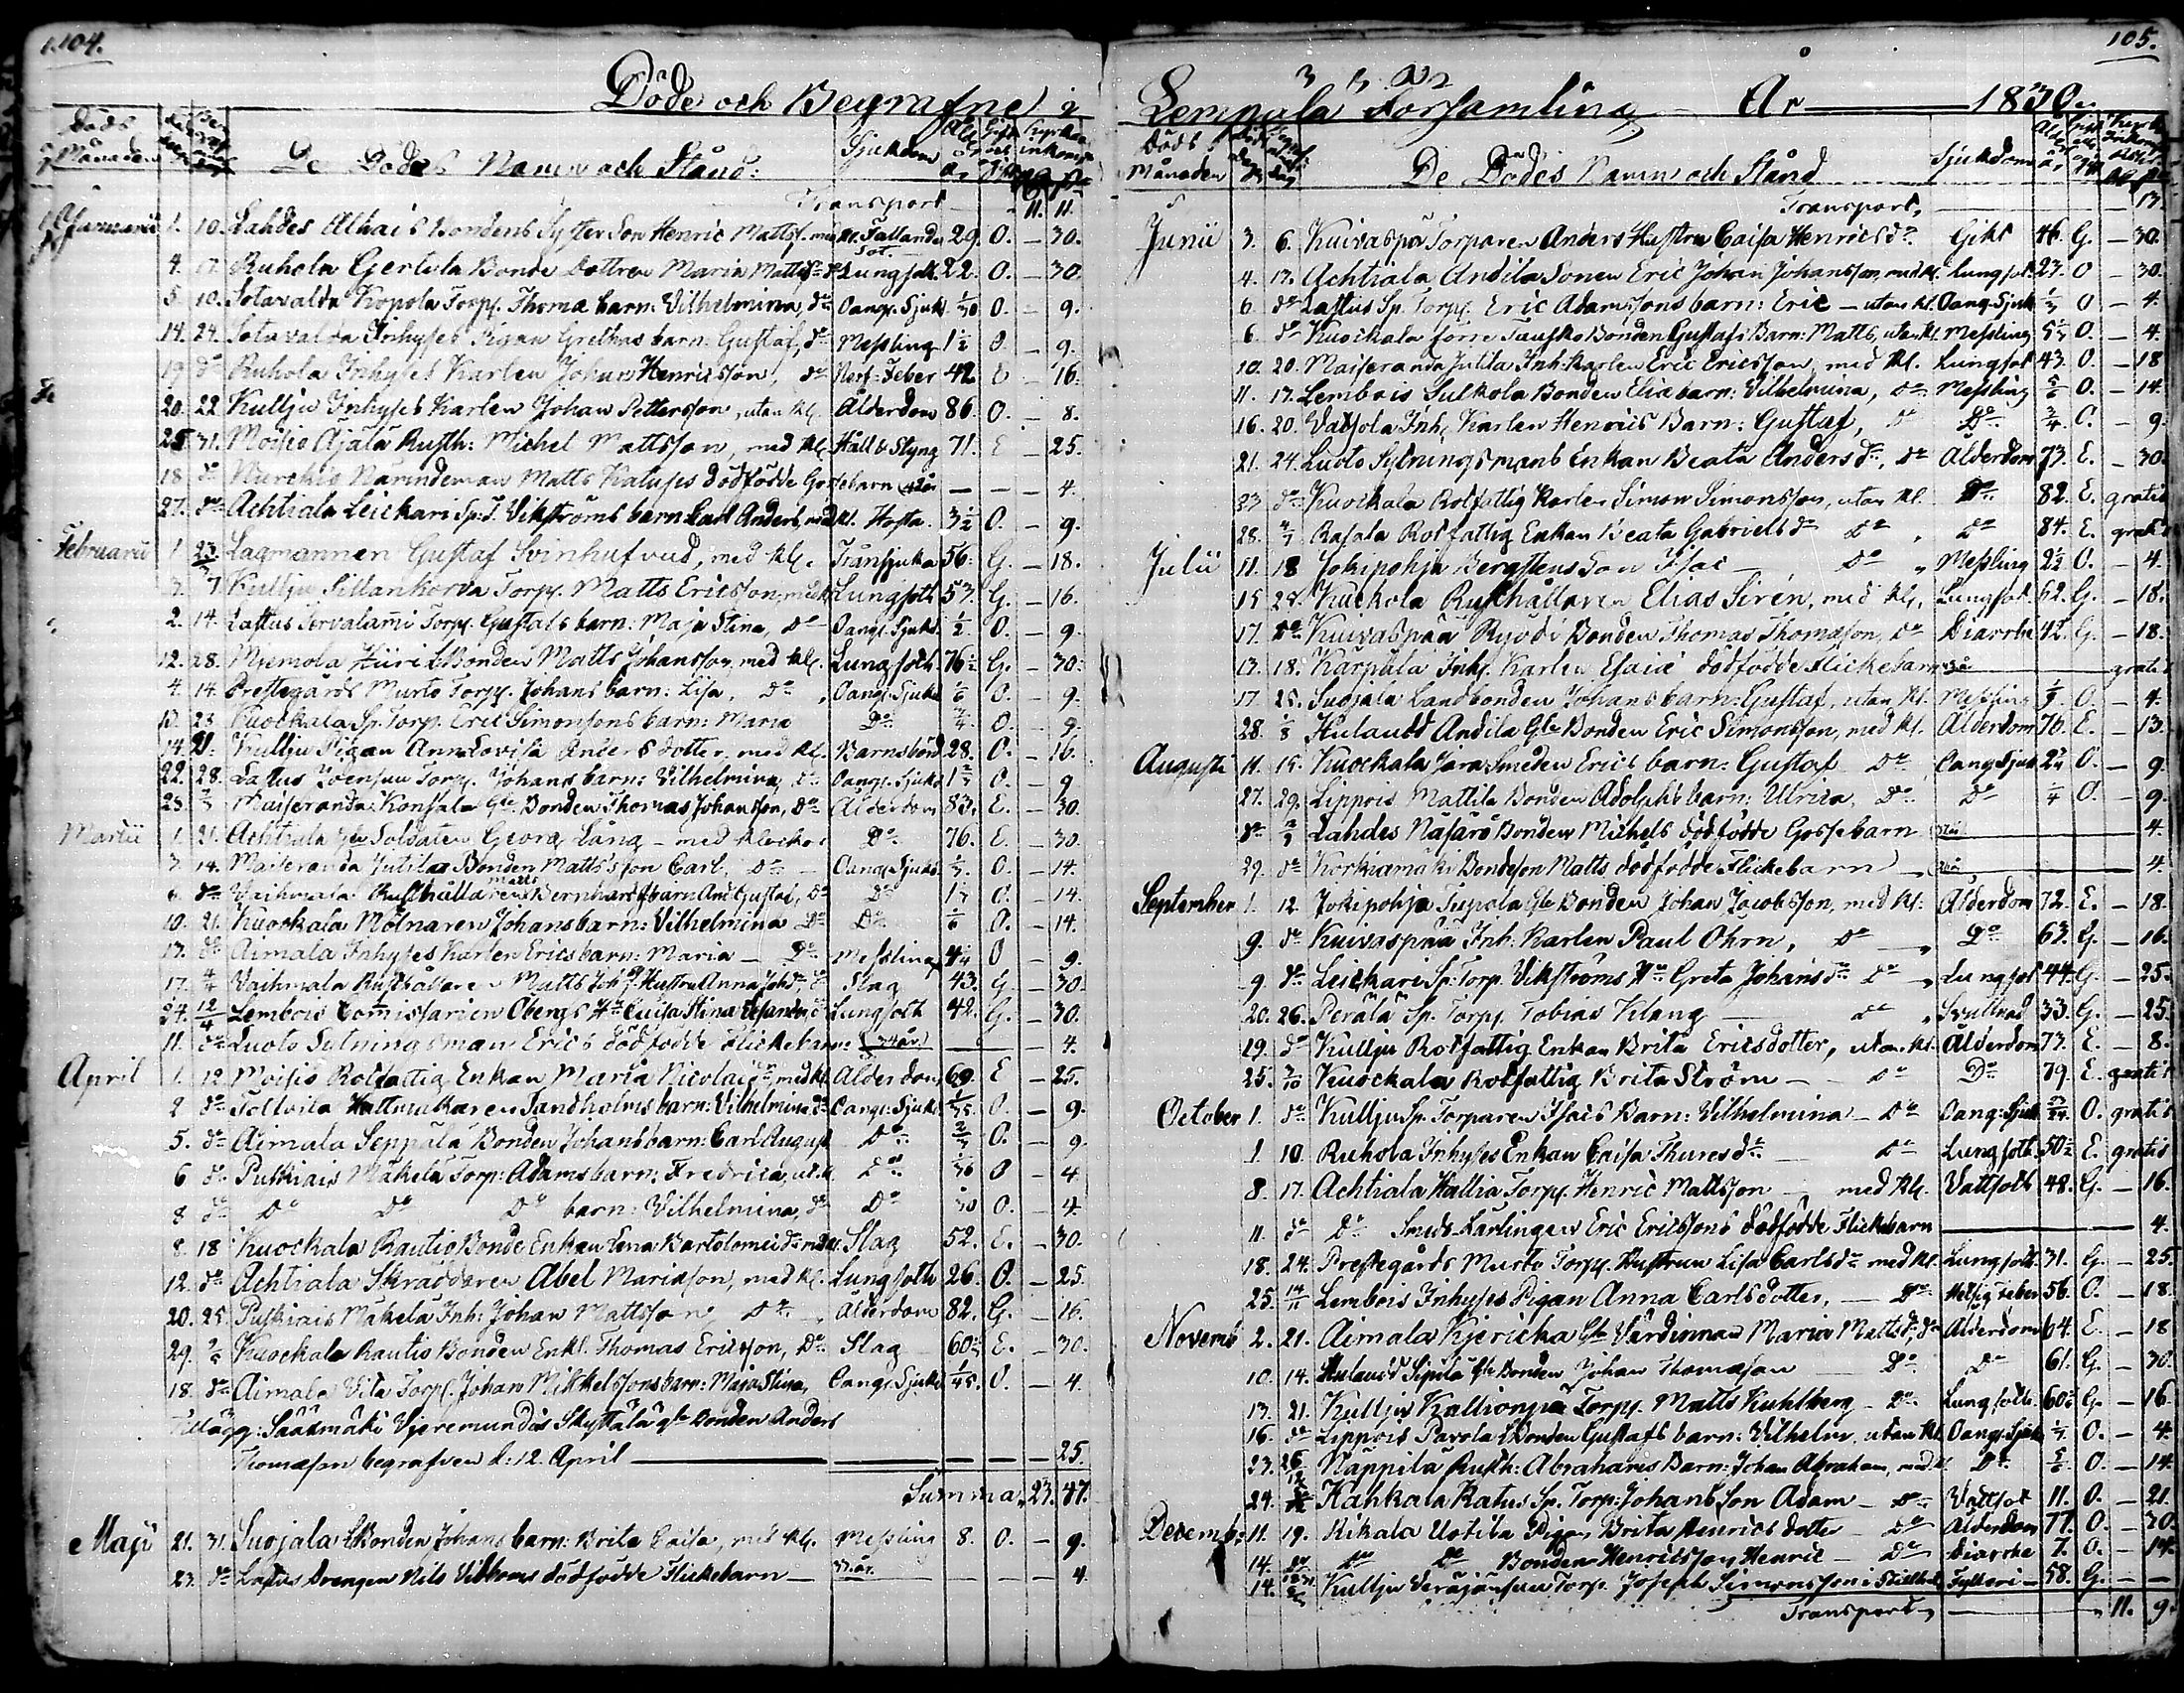 104.
Döde och Begrafne i
Döds Månaden
De Dödes Namn och Stånd:
Sjukdom
Transport 11. 11.
Januarii 1. 10. Lahdes Alhais Bondens Syster Son Henric Mattss. Fallande Sot. 29. O. – 30.
4. 17. Ruhola Gertula Bonde Dottren Maria Matts dr Lungsot. 22. O. – 30.
5. 10. Sotavalda Kopola Torp. Thoma barn: Vilhelmina, do Oang. Sjukd. 1/30 O. – 9.
14. 24. Sotavalda Inhyses Pigan Grethas barn: Gustaf, do Messling 1½ O – 9.
19 do Ruhola Inhyses Karlen Johan Henricsson, do Nerf-Feber 42. – 16.
20. 22 Kullju Inhyses Karlen Johan Pettersson, utan Kl. Ålderdom 86. O. – 8.
25. 31. Moisio Äjälä Rusth: Michel Mattsson, med Kl. Håll & Styng 71. E – 25.
18 do Nurckis Nämndeman Matts dödfödde Gossebarn – – – 4.
27. do Achtiala Leickari Sp: T. Vikströms barn Carl Anders, med Kl. Hosta. 3½ O. – 9.
Februarii 1. 23. Lagmannen Gustaf Svinhufvud, med Kl. Trånsjuka 56. G. – 18.
3. 7. Kullju Sillankorva Torp. Matts Ericsson, Lungsoth 57. G. – 16.
2. 14. Lastus Torp. Gustafs barn: Maja Stina, do Oang. Sjukd. ½. O. – 9.
12. 28. Mjemola Hiiri LBonden Matts Johansson, med Kl. Lungsoth. 76½ G. – 30.
4. 14. Prestegårds Murto Torp. Johans barn: Lisa, do Oang. Sjukd. O. – 9.
13. 23. Kuockala Sp. Torp. Eric Simonsons barn: Maria Do O. – 9.
14. 21. Kullju Pigan Anna Lovisa Anders dotter, med Kl. Barnsbörd 28. O. – 16.
22. 28. Lastus Torp. Johans barn: Vilhelmina, do Oang. Sjukd. O. – 9.
23. Maiseranda Konsala Gle Bonden Thomas Johansson, Do Ålderdom 83. E. – 30.
Martii 1. 21. Achtiala Gle Soldaten Georg Lång – med Klockor Do 76. E. – 30.
3. 14. Maiseranda Jutila Bonden Mattsson Carl. Do Oang. Sjukd. O. – 14.
6. do Vaihmala Rusthållaren Matts Bernhards barn And. Gustaf, Do Do O. – 14.
10. 21. Kuockala Mölnaren Johans barn: Vilhelmina Do Do O. – 14.
13. do Aimala Inhyses Karlen Erics barn: Maria – Do Messling 4¼ O – 9.
17. 4/4 Vaihmala Rusthållaren Matts Hustru Anna Joh. dr Do Slag 43. G – 30.
24. 12/4 Lembois Commissarien Obergs Hu Caisa Stina Lungsoth 42. G. – 30.
11. do Luoto Sytningsman Erics dödfödde Flickebarn: (34 år) – – 4.
April 1. 12. Moisio Rotfattig Enkan Maria Nicolai dr, med Kl. Ålderdom 69. E – 25.
2. do Hattmakaren Sandholms barn: Vilhelmina do Oang. Sjukd. O. – 9.
5. do Aimala Seppälä Bonden Johans barn: Carl August Do O. – 9.
6 do Putkiais Mäkelä Torp: Adams barn: Fredrica, ut. kl. Do O – 4
8 do Do Do Do barn: Vilhelmina, do Do 1/30 O. – 4.
8. 18 Kuockala Rautio Bonde Enkan Lena Bartolomei dr med Kl. Slag 52. E. – 30.
12. do Achtiala Skräddaren Abel Maxikson, med Kl. Lungsoth 26. O. – 25.
20. 25. Putkiais Mäkelä Inh: Johan Mattsson, Do – Ålderdom 82. G. – 16.
29. Kuockala Rautio Bonden Enkl. Thomas Ericsson, Do Slag 60½ E. – 30.
18. do Aimala Vila Torp. Johan Mikkelssons barn: Maja Stina, Oang. Sjukd. 1/45. O. – 4.
Tillägg: Sääxmäki Vjeremundis Skyttälä gle Bonden Anders
Thomasson begrafven d: 12. April – – – 25.
Summa 23. 47.
Maji 21. 31. Suojala LBonden Johans barn: Brita Caisa, med Kl. Messling 8. O. – 9.
23. do Lastus Drengen Nils Vibboms dödfödde Flickebarn – 37. år. – – – 4
105.
Lempala Församling År 1830.
Döds Månaden
De Dödes Namn och Stånd
Sjukdom
Transport, 17.
Junii 3. 6. Kuivaspä Torparen Anders Hustru Caisa Henrics dr Gikt 46. G. – 30.
4. 17. Achtiala Andila Sonen Eric Johan Johansson, med Kl. Lungsot. 27. O – 30.
6 do Lastus Sp. Torp. Eric Adamssons barn: Eric – utan Kl. Oang. Sjukd. O – 4.
6. do Kuockala förre Bonden Gustafs Barn: Matts, utan Kl. Messling O. – 4.
10. 20. Maiseranda Jutila Inh: Karlen Eric Ericsson, med Kl. Lungsot 43. O. – 18
11. 17. Lembois Sulkola Bonden Elia barn: Vilhelmina, Do Messling 5/6 O. – 14.
16. 20. Vatsola Inh. Karlen Henrics Barn: Gustaf, Do Do ¾. O. – 9.
21. 24. Luoto Sytningsmans Enkan Beata Anders dr, Do Ålderdom 73. E. – 30.
23 do Kuockala Rotfattig Karlen Simon Simonsson, utan Kl. Do 82. E. gratis
28. 4/7 Rasala Rotfattig Enkan Beata Gabriels dr Do Do 84. E. gratis
Julii 11. 18 Jokipohja Bergstens Son Isac – Do Messling 2½ O. – 4.
15 25. Kuckola Rusthållaren Elias Sirén, med Kl. Lungsot. 62. G. – 18.
17. Do Kuivaspää Ryödi Bonden Thomas Thomasson, Do Diarrhe 42. G. – 18.
13. 18. Karpala Inh. Karlen Esaiæ dödfödde Flickebarn gratis
17 25. Suojala Landbonden Johans barn: Gustaf, utan Kl. Messling O. – 4.
28. 1/8 Hulaudd Andila Gle Bonden Eric Simonsson, med Kl. Ålderdom 76. E. – 13.
Augusti 11. 15. Kuockala Jara Smeden Erics barn: Gustaf Do Oang. Sjukd. O. – 9.
27. 29. Lippois Mattila Bonden Adolphs barn: Ulrica, Do Do ¼ O. – 9.
Do Lahdes Näsärö Bonden Michels dödfödde Gossebarn 4.
29. do Korkiamäki Bondeson Matts dödfödde Flickebarn 4.
September 1. 12 Jokipohja Tiepola Gle Bonden Johan Jacobsson, med Kl. Ålderdom 72. E. – 18.
9. do Kuivaspää Inh. Karlen Paul Öhrn, Do Do 63. G. – 16.
9 do Leickari Sp. Torp. Vikströms Hu Greta Johans dr Do Lungsot 44. G – 25.
20. 26. Perälä Sp. Torp. Tobias Klang – Do 33. G. – 25.
19. do Kullju Rotfattig Enkan Brita Ericsdotter, utan Kl. Ålderdom 77. E. – 8.
25. 3/10 Kuockala Rotfattig Brita Ström – Do Do 79. E. gratis
October 1. do Kullju Sp. Torparen Isacs Barn: Vilhelmina – Do Oang. Sjukd. O. gratis
1. 10. Ruhola Inhyses Enkan Caisa Thures dr – Do Lungsoth. 50½ E. gratis
8. 17. Achtiala Hallia Torp. Henric Mattsson – med Kl. Vattsoth 48. G. – 16.
11. do Do Smeds Lärlingen Eric Ericssons dödfödde Flickebarn 4.
18. 24. Prestegårds Murto Torp. Hustrun Lisa Carls dr med Kl. Lungsoth. 31. G. – 25.
25. 14/11 Lembois Inhyses Pigan Anna Carlsdotter, – Do Hetsig feber 56. O. – 18.
Novemb 2. 21. Aimala Kjericka Gle Värdinnan Maria Matts dr, Do Ålderdom 64. E. – 18
10. 14. Hulaudd Sipilä Gle Bonden Johan Thomasson Do Do 61. G – 30.
13. 21. Kullju Kallionpää Torp. Matts Kuhlberg – Do Lungsoth. 60½ G. – 16
16. do Lippois Pavola LBonden Gustafs barn: Vilhelm, utan Kl. Oang. Sjukd. O. – 4.
23. 26 Näppilä Rusth: Abrahams Barn: Johan Abraham, med Kl. Do O. – 14.
24. Kahkala Ratus Sp. Torp: Johans Son Adam – Do Vattsot 11. O. – 21.
Decemb: 11. 19. Hikala Uotila Pigan Brita Henrics dotter – Do Ålderdom 77. O. – 30.
14. do Do Do Bonden Henricsson Henric – Do Diarrhe 7. O. – 14.
14. Kullju Torp. Joseph Simonsson Fylleri – 58. G. – –
Transport 11. 9.